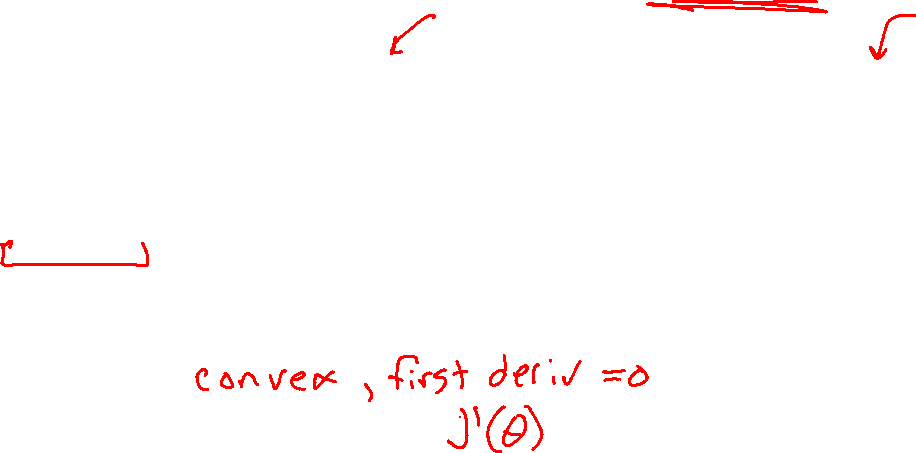 convex, first deriv =0
J'(θ)